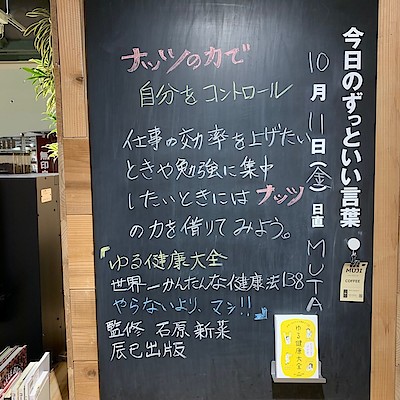 今日のずっといい言葉
10月11日(金)日直 MUTA
ナッツの力で
自分をコントロール
仕事の効率を上げたい
ときや勉強に集中
したいときにはナッツ
の力を借りてみよう。
『ゆる健康大全
世界一かんたんな健康法138
やらないより、マシ!!』
監修 石原新菜
辰巳出版
MUJI
COFFEE
ゆる健康大全